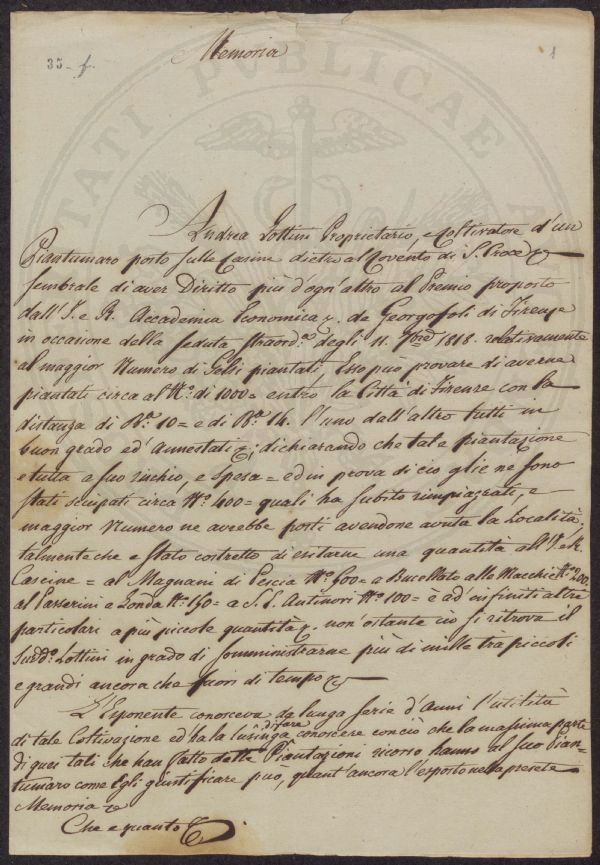 Memoria
35-f.
1
Andrea Lottini Proprietario, e Coltivatore d'un
Piantumaro posto sulle Casine dietro al Convento di S. Croce
sembrale di aver Diritto più d'ogn'altro al Premio proposto
dall'I. e R. Accademia Economica de Georgofoli di Firenze
in occasione della seduta straord.a degli 11. 7bre 1818. relativamente
al maggior Numero di Gelsi piantati, Esso può provare di averne
piantati circa al N.o di 1000= entro la Città di Firenze con la
distanza di B.a 10= e di B.a 14. l'uno dall'altro tutti in
buon grado ed' annestati; dichiarando che tale piantazione
e tutta a suo rischio, e spesa= ed in prova di cio glie ne sono
stati sciupati circa N.o 400= quali ha subito rimpiazzati, e
maggior Numero ne avrebbe posti avendone avuta la Località,
talmente che e stato costretto di esitarne una quantità all'I. e R.
Cascine= al Magnani di Pescia N.o 600= a Bucellato alle Macchie N.o 200
al Passerini a Londa N.o 150= a S.E. Antinori N.o 100= è ad' infiniti altri
particolari a più piccole quantità. non'ostante cio si ritrova il
Sudd.o Lottini in grado di somministrarne più di mille tra piccoli
e grandi ancora che fuori di tempo
L'Esponente conosceva da lunga serie d'Anni l'utilità
di tale Coltivazione ed ha la lusinga di fare conoscere con ciò che la massima parte
di quei tali che han fatto delle Piantazioni ricorso hanno al suo Pian-
tumaro come Egli giustificare può, quant'ancora l'esposto nella presete
Memoria
Che e quanto